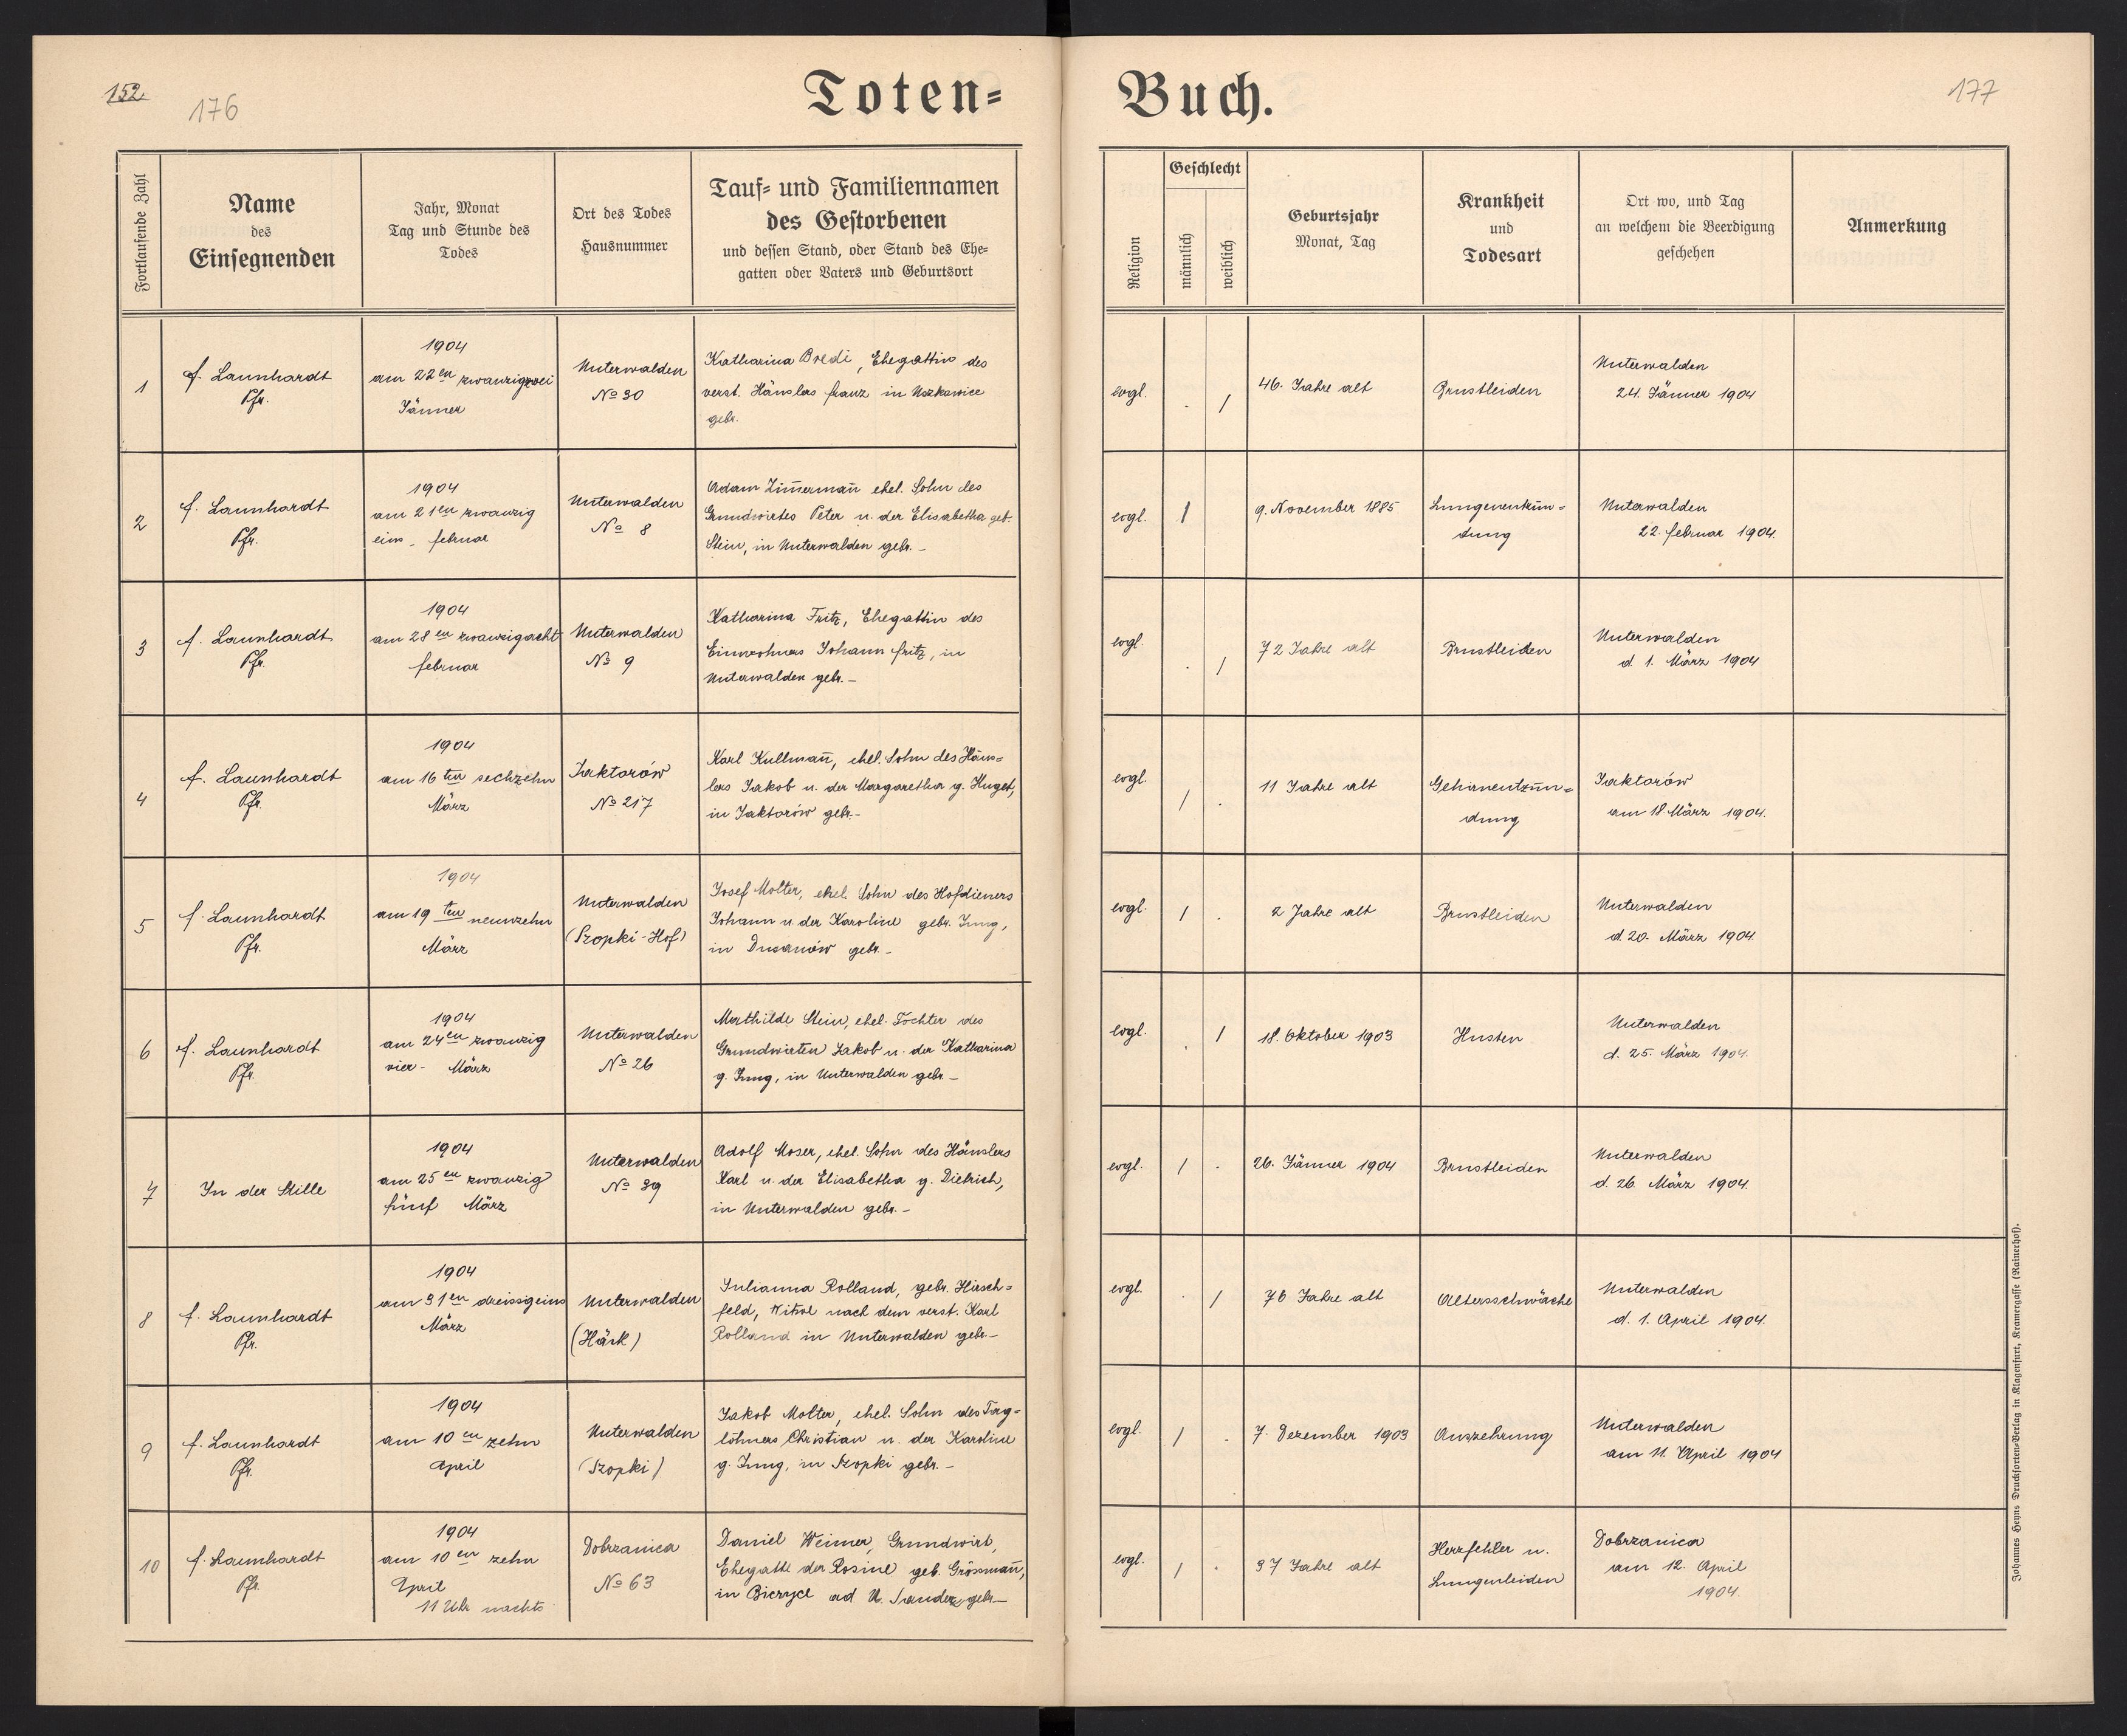 152
176
Toten=
Buch.
177
Fortlaufende Zahl
Name
des
Einsegnenden
Jahr, Monat
Tag und Stunde des
Todes
Ort des Todes
Hausnummer
Tauf= und Familiennamen
des Gestorbenen
und dessen Stand, oder Stand des Ehe=
gatten oder Vaters und Geburtsort
Religion
Geschlecht
männlich
weiblich
Geburtsjahr
Monat, Tag
Krankheit
und
Todesart
Ort wo, und Tag
an welchem die Beerdigung
geschehen
Anmerkung
1
f. Launhardt
Pfr.
1904
am 22en zwanzigzwei
Jänner
Unterwalden
No 30
Katharina Bredi, Ehegattin des
verst. Häuslers Franz in Uszkowice
gebr.
evgl.
. /
46. Jahre alt
Brustleiden
Unterwalden
24. Jänner 1904
2
f. Launhardt
Pfr.
1904
am 21en zwanzig
eins - februar
Unterwalden
No 8
Adam Zim̄erman̄ ehel. Sohn des
Grundwirtes Peter u. der Elisabetha geb.
Stein, in Unterwalden gebr. -
evgl.
/
9. November 1885
Lungenentzün=
dung
Unterwalden
22. februar 1904.
3
f. Launhardt
Pfr.
1904
am 28en zwanzigacht
februar
Unterwalden
No 9
Katharina Fritz, Ehegattin des
Einwohners Johann fritz, in
Unterwalden gebr. -
evgl.
. /
72 Jahre alt
Brustleiden
Unterwalden
d. 1. März 1904
4
f. Launhardt
Pfr.
1904
am 16ten sechzehn
März
Jaktorów
No 217
Karl Kullman̄, ehel. Sohn des Häus=
lers Jakob u. der Margaretha g. Huget,
in Jaktorów gebr. -
evgl.
/ .
11 Jahre alt
Gehirnentzün=
dung
Jaktorów
am 18. März 1904.
5
f. Launhardt
Pfr.
1904
am 19ten neunzehn
März
Unterwalden
(Szopki-Hof)
Josef Molter, ehel. Sohn des Hofdieners
Johann u. der Karoline gebr. Jung,
in Dusanów gebr. -
evgl.
/ .
2 Jahre alt
Brustleiden
Unterwalden
d. 20. März 1904.
6
f. Launhardt
Pfr.
1904
am 24en zwanzig
vier - März
Unterwalden
No 26
Mathilde Stein, ehel. Tochter des
Grundwirten Jakob u. der Katharina
g. Jung, in Unterwalden gebr. -
evgl.
. /
18. Oktober 1903
Husten
Unterwalden
d. 25. März 1904.
7
In der Stille
1904
am 25en zwanzig
fünf März
Unterwalden
No 39
Adolf Moser, ehel. Sohn des Häuslers
Karl u. der Elisabetha g. Dietrich,
in Unterwalden gebr. -
evgl.
/ .
26. Jänner 1904
Brustleiden
Unterwalden
d. 26. März 1904.
8
f. Launhardt
Pfr.
1904
am 31en dreissigeins
März
Unterwalden
(Häsk)
Julianna Rolland, gebr. Hirsch=
feld, Witwe nach dem verst. Karl
Rolland in Unterwalden gebr. -
evgl.
. /
76 Jahre alt
Altersschwäche
Unterwalden
d. 1. April 1904.
9
f. Launhardt
Pfr.
1904
am 10en zehn
April
Unterwalden
(Szopki)
Jakob Molter, ehel. Sohn des Tag=
löhners Christian u. der Karoline
g. Jung, in Szopki gebr. -
evgl.
/ .
7. Dezember 1903
Auszehrung
Unterwalden
am 11. April 1904
10
f. Launhardt
Pfr.
1904
am 10en zehn
April
11 Uhr nachts
Dobrzanica
No 63
Daniel Weimer, Grundwirt,
Ehegatte der Rosine geb. Grössman̄,
in Biczyce ad N. Sandez gebr. -
evgl.
/ .
37 Jahre alt
Herzfehler u.
Lungenleiden
Dobrzanica
am 12. April
1904.
Johannes Heyns Drucksorten=Verlag in Klagenfurt, Kramergasse (Rainerhof).